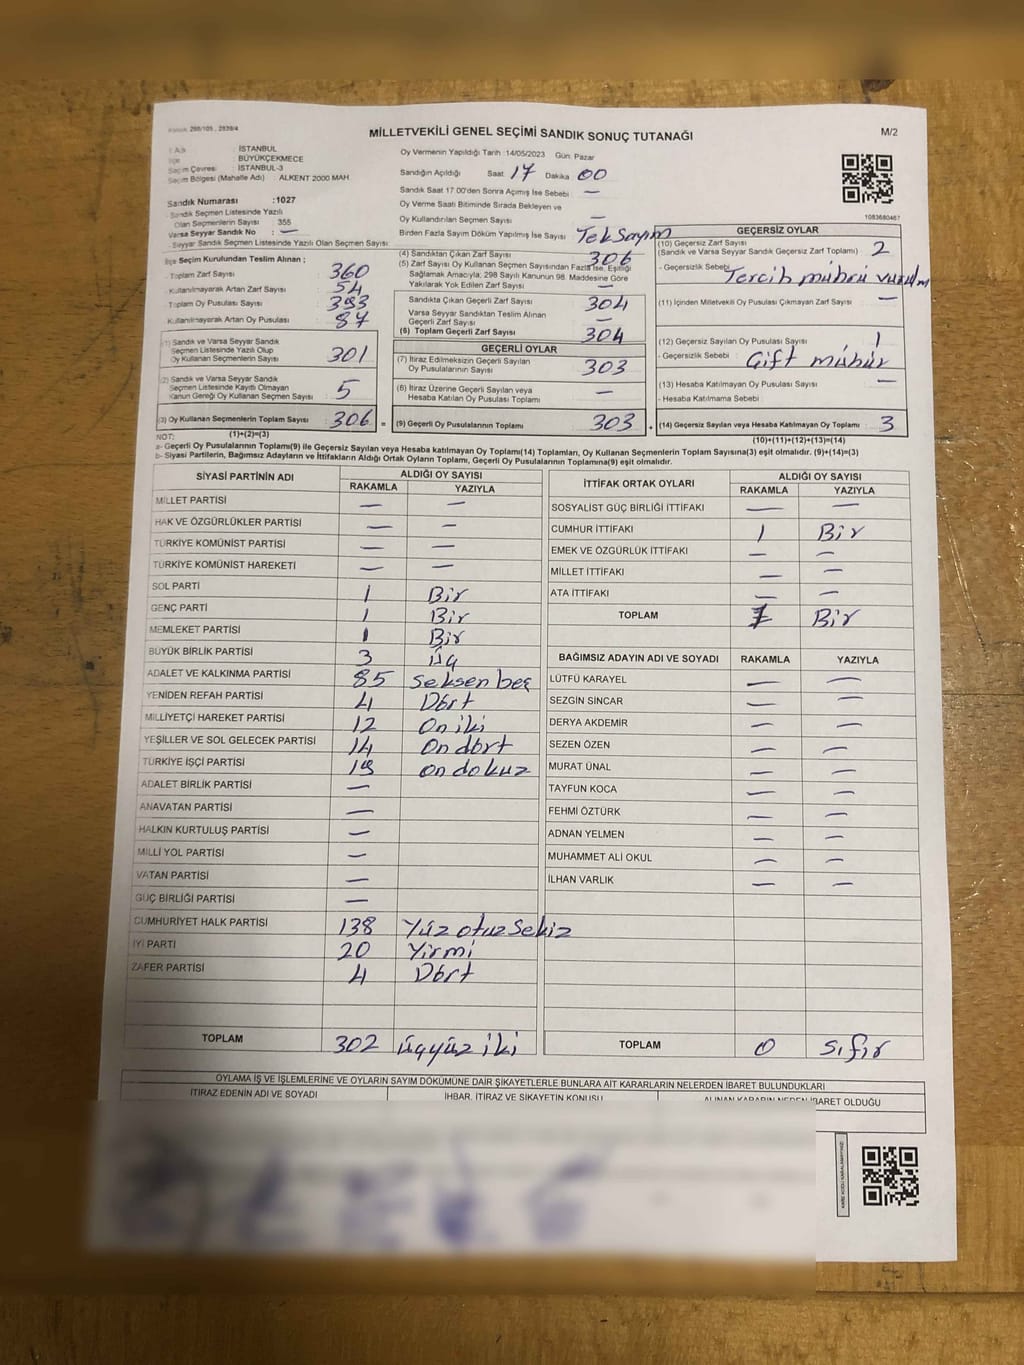 298/105 , 2839/4
MİLLETVEKİLİ GENEL SEÇİMİ SANDIK SONUÇ TUTANAĞI
M/2
İl Adı : İSTANBUL
İlçe : BÜYÜKÇEKMECE
Seçim Çevresi : İSTANBUL-3
Seçim Bölgesi (Mahalle Adı) : ALKENT 2000 MAH
Oy Vermenin Yapıldığı Tarih :14/05/2023 Gün: Pazar
Sandığın Açıldığı Saat 17 Dakika 00
Sandık Saat 17.00'den Sonra Açımış İse Sebebi —
Oy Verme Saati Bitiminde Sırada Bekleyen ve
Oy Kullandırılan Seçmen Sayısı —
Birden Fazla Sayım Döküm Yapılmış İse Sayısı Tek Sayım
1083680467
Sandık Numarası :1027
Sandık Seçmen Listesinde Yazılı
Olan Seçmenlerin Sayısı : 355
Varsa Seyyar Sandık No : —
Seyyar Sandık Seçmen Listesinde Yazılı Olan Seçmen Sayısı:
İlçe Seçim Kurulundan Teslim Alınan ;
Toplam Zarf Sayısı 360
Kullanılmayarak Artan Zarf Sayısı 54
Toplam Oy Pusulası Sayısı 393
Kullanılmayarak Artan Oy Pusulası 87
(1) Sandık ve Varsa Seyyar Sandık
Seçmen Listesinde Yazılı Olup
Oy Kullanan Seçmenlerin Sayısı 301
(2) Sandık ve Varsa Seyyar Sandık
Seçmen Listesinde Kayıtlı Olmayan
Kanun Gereği Oy Kullanan Seçmen Sayısı 5
(3) Oy Kullanan Seçmenlerin Toplam Sayısı 306 =
(4) Sandıktan Çıkan Zarf Sayısı 306
(5) Zarf Sayısı Oy Kullanan Seçmen Sayısından Fazla İse, Eşitliği
Sağlamak Amacıyla, 298 Sayılı Kanunun 98. Maddesine Göre
Yakılarak Yok Edilen Zarf Sayısı —
Sandıkta Çıkan Geçerli Zarf Sayısı 304
Varsa Seyyar Sandıktan Teslim Alınan
Geçerli Zarf Sayısı —
(6) Toplam Geçerli Zarf Sayısı 304
GEÇERLİ OYLAR
(7) İtiraz Edilmeksizin Geçerli Sayılan
Oy Pusulalarının Sayısı 303
(8) İtiraz Üzerine Geçerli Sayılan veya
Hesaba Katılan Oy Pusulası Toplamı —
(9) Geçerli Oy Pusulalarının Toplamı 303
GEÇERSİZ OYLAR
(10) Geçersiz Zarf Sayısı
(Sandık ve Varsa Seyyar Sandık Geçersiz Zarf Toplamı) 2
- Geçersizlik Sebebi Tercih mührü vurulm
(11) İçinden Milletvekili Oy Pusulası Çıkmayan Zarf Sayısı —
(12) Geçersiz Sayılan Oy Pusulası Sayısı 1
- Geçersizlik Sebebi : Çift mühür
(13) Hesaba Katılmayan Oy Pusulası Sayısı —
- Hesaba Katılmama Sebebi
(14) Geçersiz Sayılan veya Hesaba Katılmayan Oy Toplamı 3
NOT: (1)+(2)=(3)
(10)+(11)+(12)+(13)=(14)
a- Geçerli Oy Pusulalarının Toplamı(9) ile Geçersiz Sayılan veya Hesaba katılmayan Oy Toplamı(14) Toplamları, Oy Kullanan Seçmenlerin Toplam Sayısına(3) eşit olmalıdır. (9)+(14)=(3)
b- Siyasi Partilerin, Bağımsız Adayların ve İttifakların Aldığı Ortak Oyların Toplamı, Geçerli Oy Pusulalarının Toplamına(9) eşit olmalıdır.
SİYASİ PARTİNİN ADI ALDIĞI OY SAYISI
RAKAMLA YAZIYLA
MİLLET PARTİSİ — —
HAK VE ÖZGÜRLÜKLER PARTİSİ — —
TÜRKİYE KOMÜNİST PARTİSİ — —
TÜRKİYE KOMÜNİST HAREKETİ — —
SOL PARTİ 1 Bir
GENÇ PARTİ 1 Bir
MEMLEKET PARTİSİ 1 Bir
BÜYÜK BİRLİK PARTİSİ 3 üç
ADALET VE KALKINMA PARTİSİ 85 Seksen beş
YENİDEN REFAH PARTİSİ 4 Dört
MİLLİYETÇİ HAREKET PARTİSİ 12 On iki
YEŞİLLER VE SOL GELECEK PARTİSİ 14 On dört
TÜRKİYE İŞÇİ PARTİSİ 19 on dokuz
ADALET BİRLİK PARTİSİ —
ANAVATAN PARTİSİ —
HALKIN KURTULUŞ PARTİSİ —
MİLLİ YOL PARTİSİ —
VATAN PARTİSİ —
GÜÇ BİRLİĞİ PARTİSİ —
CUMHURİYET HALK PARTİSİ 138 Yüz otuz Sekiz
İYİ PARTİ 20 Yirmi
ZAFER PARTİSİ 4 Dört
TOPLAM 302 üçyüz iki
İTTİFAK ORTAK OYLARI ALDIĞI OY SAYISI
RAKAMLA YAZIYLA
SOSYALİST GÜÇ BİRLİĞİ İTTİFAKI — —
CUMHUR İTTİFAKI 1 Bir
EMEK VE ÖZGÜRLÜK İTTİFAKI — —
MİLLET İTTİFAKI — —
ATA İTTİFAKI — —
TOPLAM 1 Bir
BAĞIMSIZ ADAYIN ADI VE SOYADI RAKAMLA YAZIYLA
LÜTFÜ KARAYEL — —
SEZGİN SİNCAR — —
DERYA AKDEMİR — —
SEZEN ÖZEN — —
MURAT ÜNAL — —
TAYFUN KOCA — —
FEHMİ ÖZTÜRK — —
ADNAN YELMEN — —
MUHAMMET ALİ OKUL — —
İLHAN VARLIK — —
TOPLAM 0 Sıfır
OYLAMA İŞ VE İŞLEMLERİNE VE OYLARIN SAYIM DÖKÜMÜNE DAİR ŞİKAYETLERLE BUNLARA AİT KARARLARIN NELERDEN İBARET BULUNDUKLARI
İTİRAZ EDENİN ADI VE SOYADI İHBAR, İTİRAZ VE ŞİKAYETİN KONUSU ALINAN KARARIN NEDEN İBARET OLDUĞU